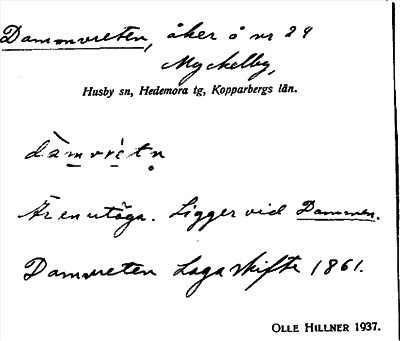 Dammvreten, åker å nr 29
Myckelby,
Husby sn, Hedemora tg, Kopparbergs län.
dàmvrètn
Är en utäga. Ligger vid Dammen.
Damvreten Laga skifte 1861.
OLLE HILLNER 1937.